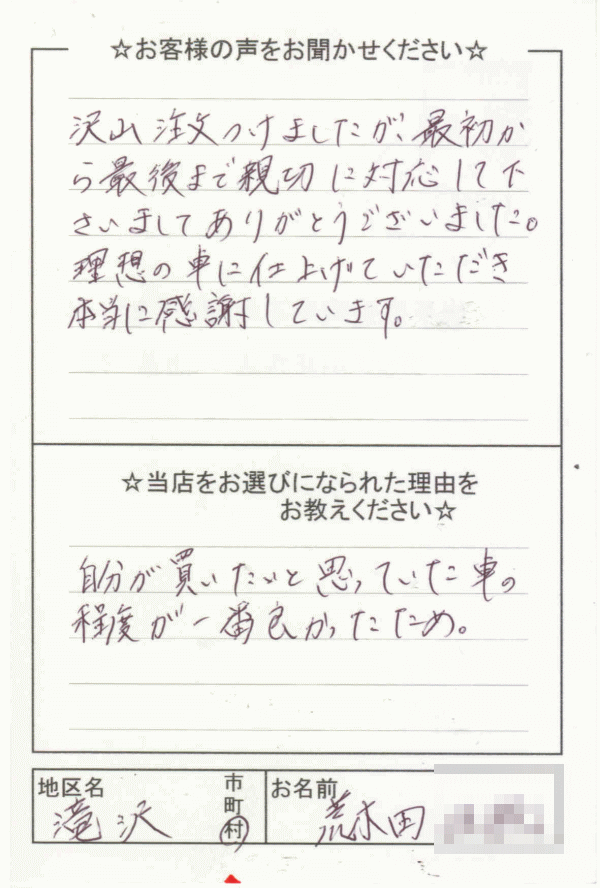 ☆お客様の声をお聞かせください☆
沢山注文つけましたが、最初か
ら最後まで親切に対応して下
さいましてありがとうございました。
理想の車に仕上げていただき
本当に感謝しています。
☆当店をお選びになられた理由を
お教えください☆
自分が買いたいと思っていた車の
程度が一番良かったため。
地区名
滝沢
市
町
村
お名前
荒木田